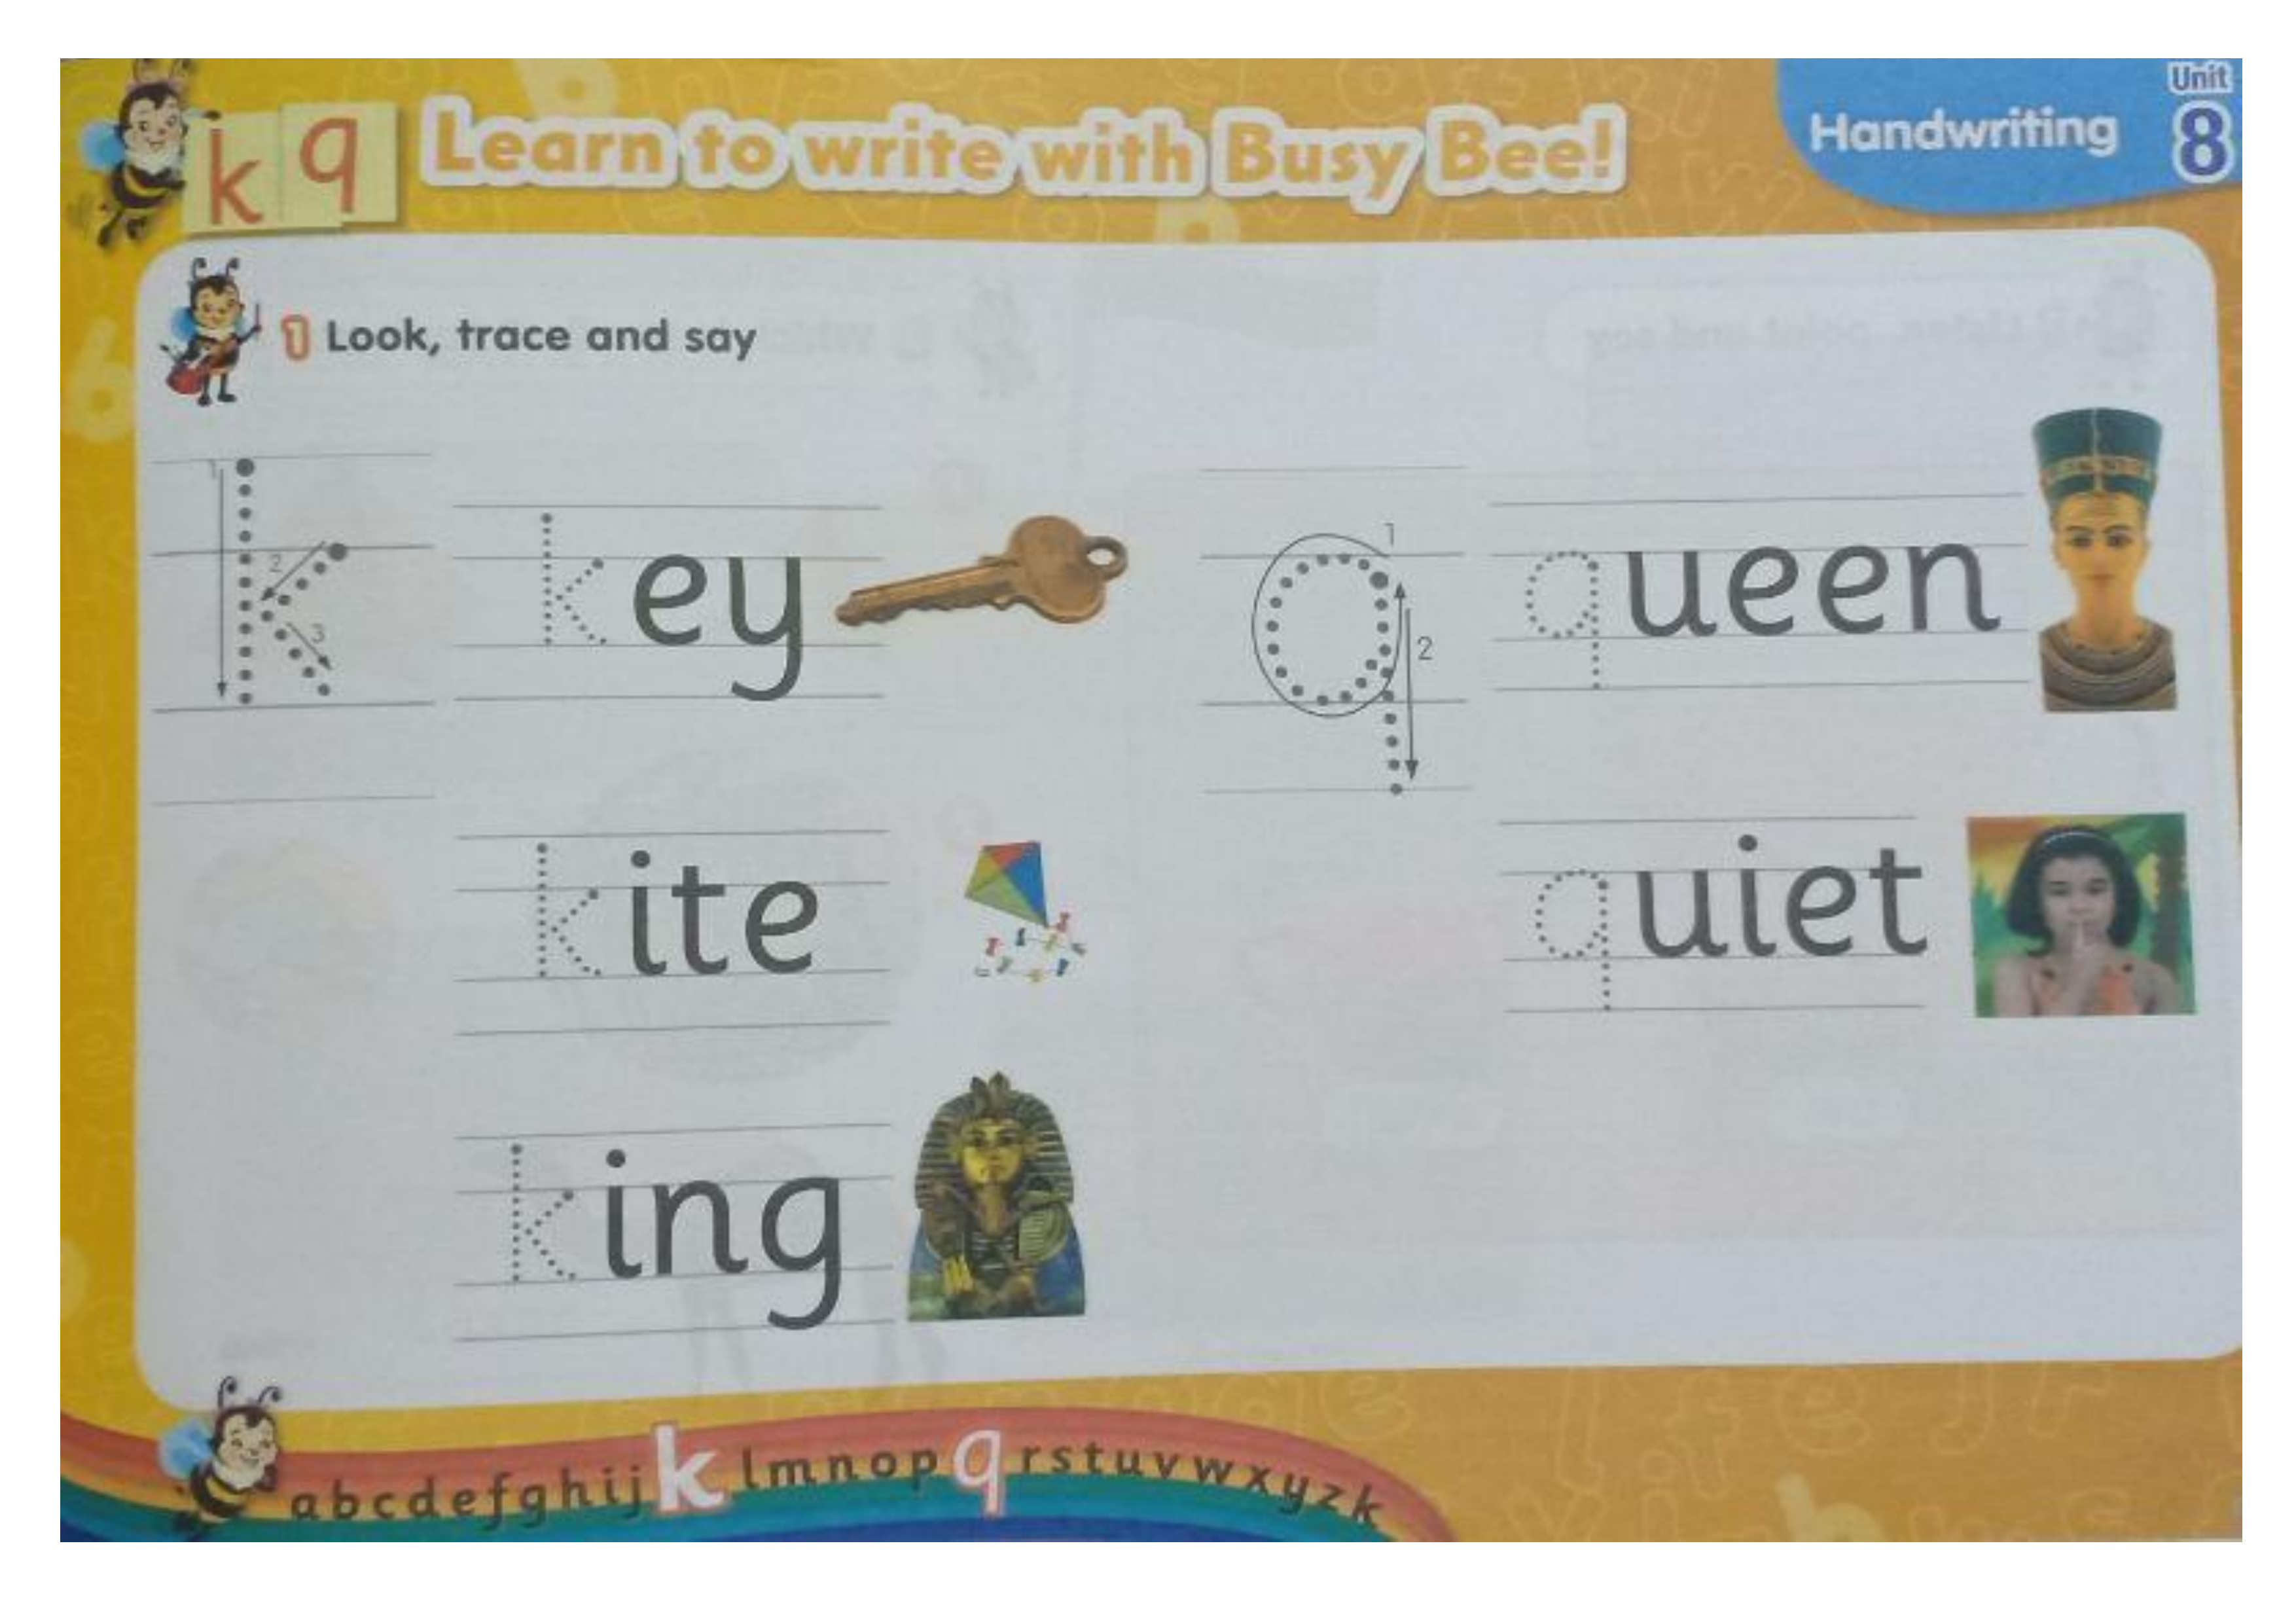 k q Learn to write with Busy Bee!
Handwriting
Unit
8
1 Look, trace and say
1
2
3
k
key
1
2
q
queen
kite
quiet
king
abcdefghijklmnopqrstuvwxyzk